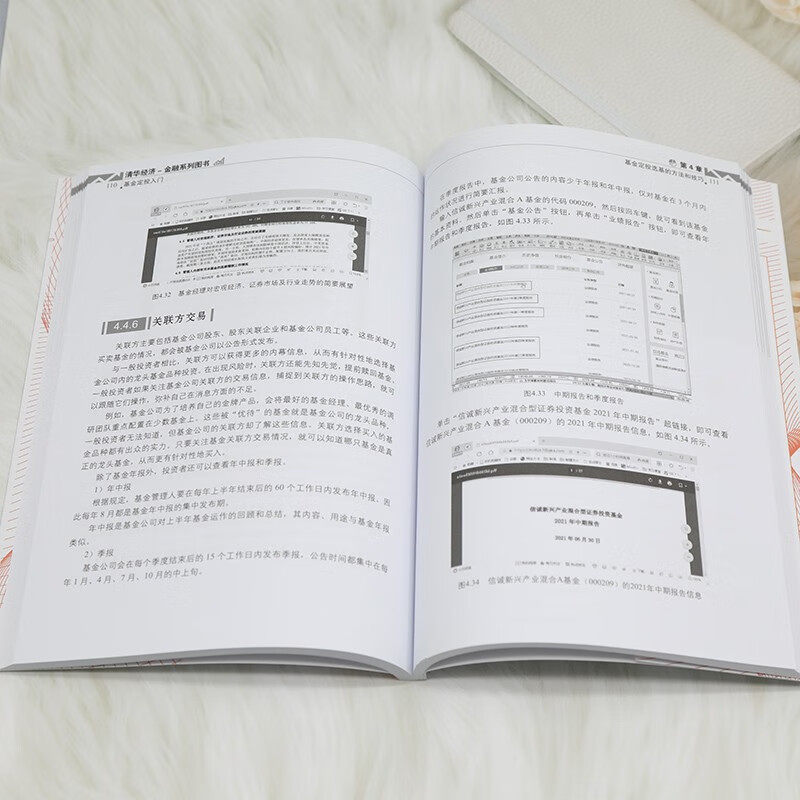 清华经济-金融系列图书
110
基金定投入门
图4.32 基金经理对宏观经济、证券市场及行业走势的简要展望
4.4.6 关联方交易
关联方主要包括基金公司股东、股东关联企业和基金公司员工等，这些关联方
买卖基金的情况，都会被基金公司以公告形式发布。
与一般投资者相比，关联方可以获得更多的内幕信息，从而有针对性地选择基
金公司内的龙头基金品种投资，在出现风险时，关联方还能先知先觉，提前赎回基金。
一般投资者如果关注基金公司关联方的交易信息，捕捉到关联方的操作思路，就可
以跟随它们操作，弥补自己在消息方面的不足。
例如，基金公司为了培养自己的金牌产品，会将最好的基金经理、最优秀的调
研团队重点配置在少数基金上，这些被“优待”的基金就是基金公司的龙头品种。
一般投资者无法知道，但基金公司的关联方却了解这些信息。关联方选择买入的基
金品种都有出众的实力，只要关注基金关联方交易情况，就可以知道哪只基金是真
正的龙头基金，从而更有针对性地买入。
除了基金年报外，投资者还可以查看年中报和季报。
1）年中报
根据规定，基金管理人要在每年上半年结束后的 60 个工作日内发布年中报，因
此每年 8 月都是基金年中报的集中发布期。
年中报是基金公司对上半年基金运作的回顾和总结，其内容、用途与基金年报
类似。
2）季报
基金公司会在每个季度结束后的 15 个工作日内发布季报，公告时间都集中在每
年 1 月、4 月、7 月、10 月的中上旬。
第 4 章
基金定投选基的方法和技巧 111
在季度报告中，基金公司公告的内容少于年报和年中报，仅对基金在 3 个月内
的运作状况进行简要汇报。
输入信诚新兴产业混合 A 基金的代码 000209，然后按回车键，就可看到该基金
的基本资料，然后单击“基金公告”按钮，再单击“业绩报告”按钮，即可查看年
期报告和季度报告，如图 4.33 所示。
图4.33 中期报告和季度报告
单击“信诚新兴产业混合型证券投资基金 2021 年中期报告”超链接，即可查看
信诚新兴产业混合 A 基金（000209）的 2021 年中期报告信息，如图 4.34 所示。
信诚新兴产业混合型证券投资基金
2021 年中期报告
2021 年 06 月 30 日
图4.34 信诚新兴产业混合A基金（000209）的2021年中期报告信息